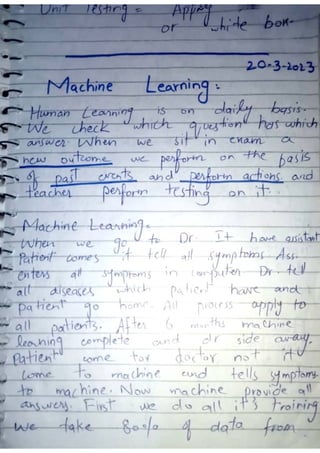 Unit Testing = Apply
or white box
20-3-2023
Machine Learning:
Human Learning is on daily basis.
We check which question has which
answer. When we sit in exam a
new outcome we perform on the basis
of past events and perform actions. and
teacher perform testing on it.
Machine Learning.
When we go to Dr. It have assistant
Patient comes it tell all symptoms Ass.
enters all symptoms in computer Dr. tell
all diseases which patient have and
patient go home. All process apply to
all patients. After 6 months machine
learning complete and dr side away.
Patient come for doctor not it
come to machine and tells symptoms
to machine. Now machine provide all
answers. First we do all it's training
we take 80% of data from